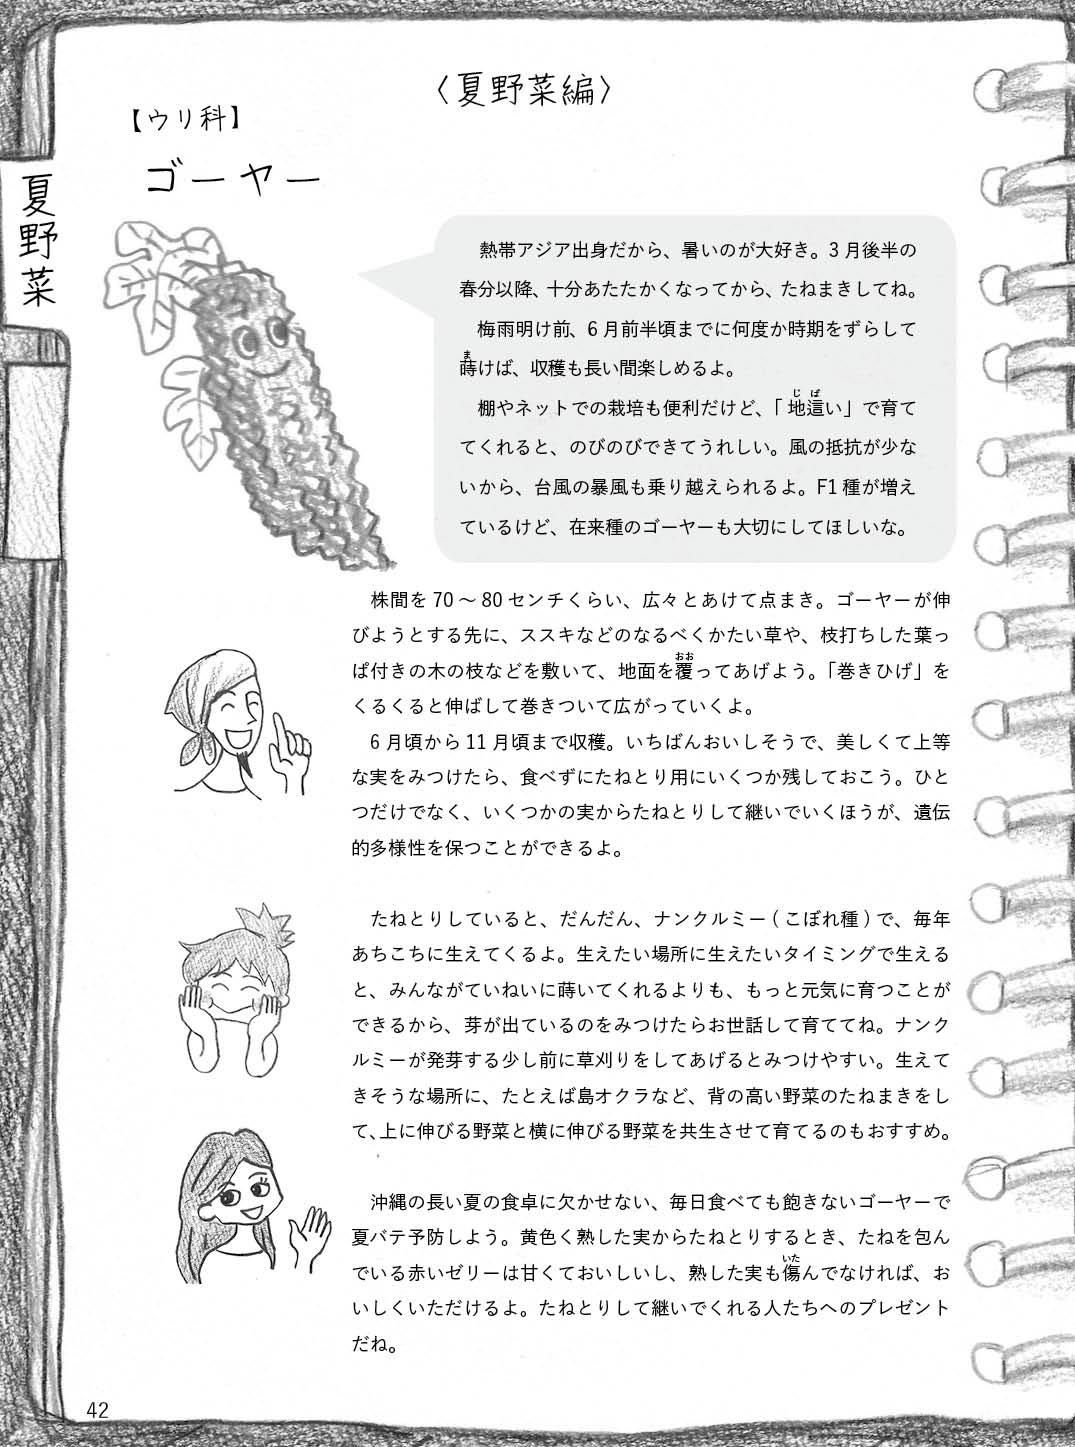 〈夏野菜編〉
【ウリ科】
ゴーヤー
夏野菜
熱帯アジア出身だから、暑いのが大好き。3月後半の
春分以降、十分あたたかくなってから、たねまきしてね。
梅雨明け前、6月前半頃までに何度か時期をずらして
ま
蒔けば、収穫も長い間楽しめるよ。
じば
棚やネットでの栽培も便利だけど、「地這い」で育て
てくれると、のびのびできてうれしい。風の抵抗が少な
いから、台風の暴風も乗り越えられるよ。F1種が増え
ているけど、在来種のゴーヤーも大切にしてほしいな。
株間を70〜80センチくらい、広々とあけて点まき。ゴーヤーが伸
びようとする先に、ススキなどのなるべくかたい草や、枝打ちした葉っ
おお
ぱ付きの木の枝などを敷いて、地面を覆ってあげよう。「巻きひげ」を
くるくると伸ばして巻きついて広がっていくよ。
6月頃から11月頃まで収穫。いちばんおいしそうで、美しくて上等
な実をみつけたら、食べずにたねとり用にいくつか残しておこう。ひと
つだけでなく、いくつかの実からたねとりして継いでいくほうが、遺伝
的多様性を保つことができるよ。
たねとりしていると、だんだん、ナンクルミー(こぼれ種)で、毎年
あちこちに生えてくるよ。生えたい場所に生えたいタイミングで生える
と、みんながていねいに蒔いてくれるよりも、もっと元気に育つことが
できるから、芽が出ているのをみつけたらお世話して育ててね。ナンク
ルミーが発芽する少し前に草刈りをしてあげるとみつけやすい。生えて
きそうな場所に、たとえば島オクラなど、背の高い野菜のたねまきをし
て、上に伸びる野菜と横に伸びる野菜を共生させて育てるのもおすすめ。
沖縄の長い夏の食卓に欠かせない、毎日食べても飽きないゴーヤーで
夏バテ予防しよう。黄色く熟した実からたねとりするとき、たねを包ん
いた
でいる赤いゼリーは甘くておいしいし、熟した実も傷んでなければ、お
いしくいただけるよ。たねとりして継いでくれる人たちへのプレゼント
だね。
42